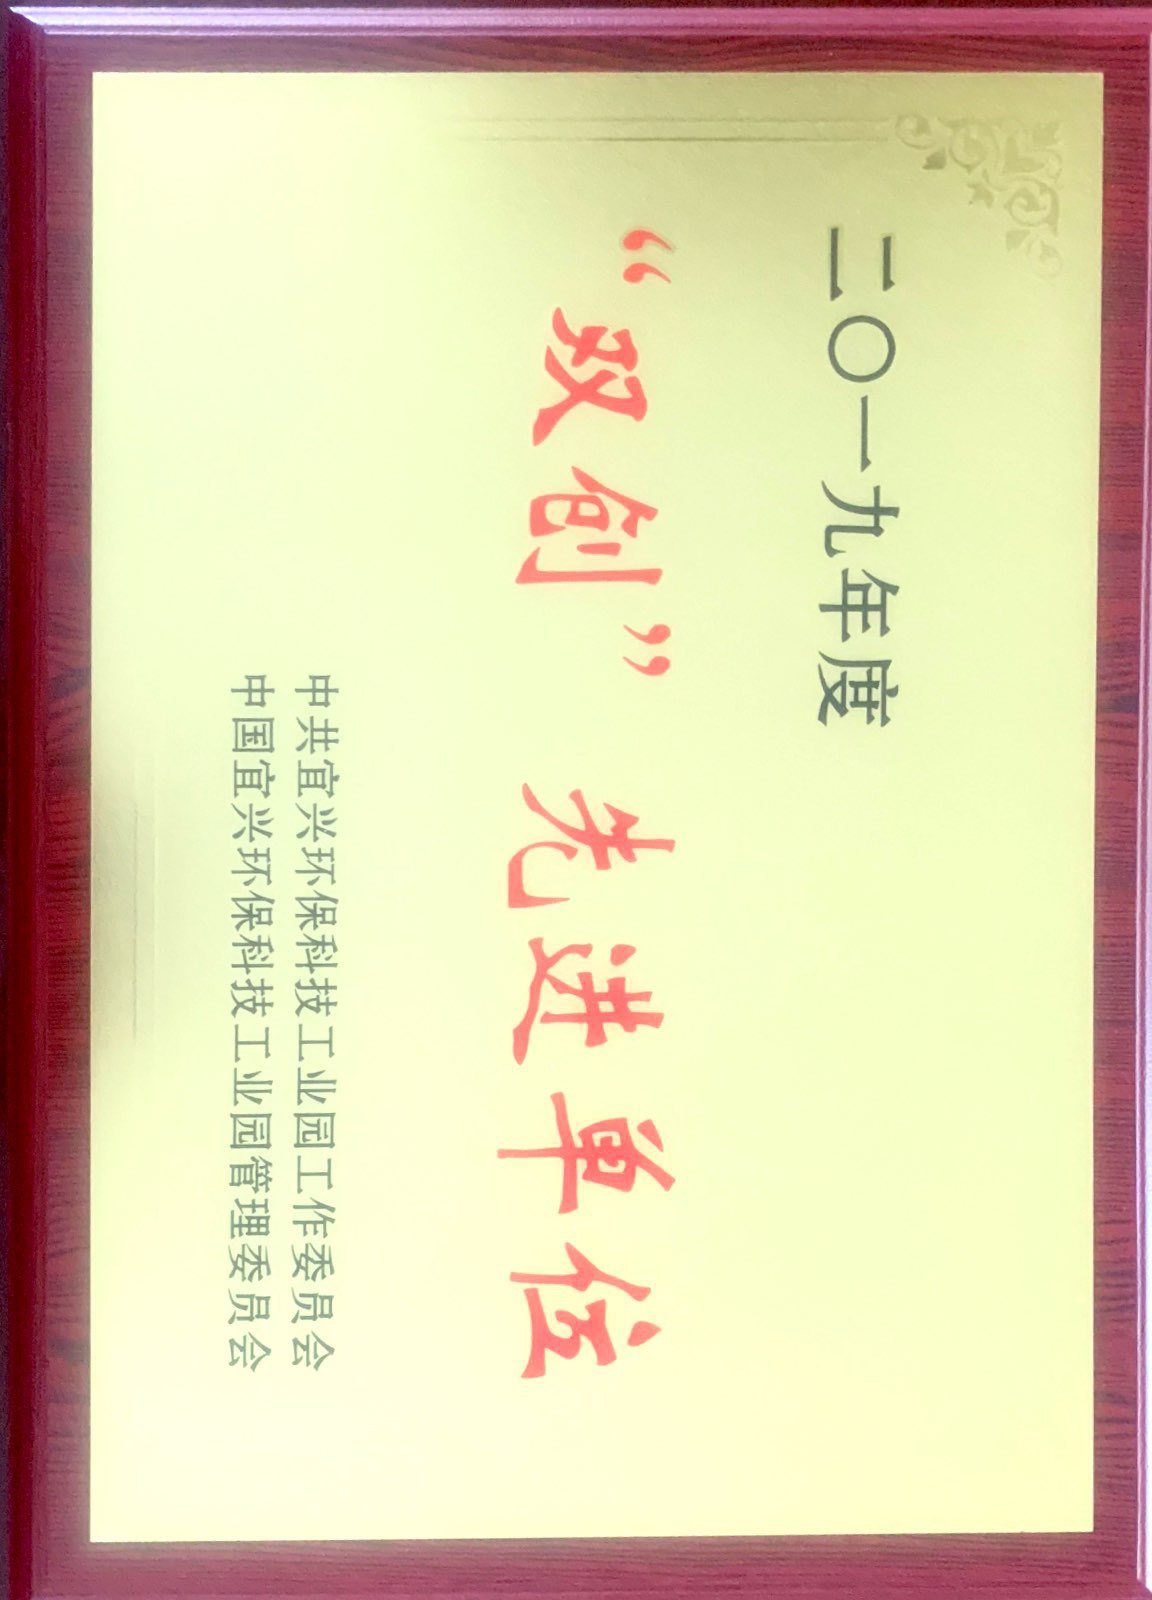 二〇一九年度
“双创” 先进单位
中共宜兴环保科技工业园工作委员会
中国宜兴环保科技工业园管理委员会